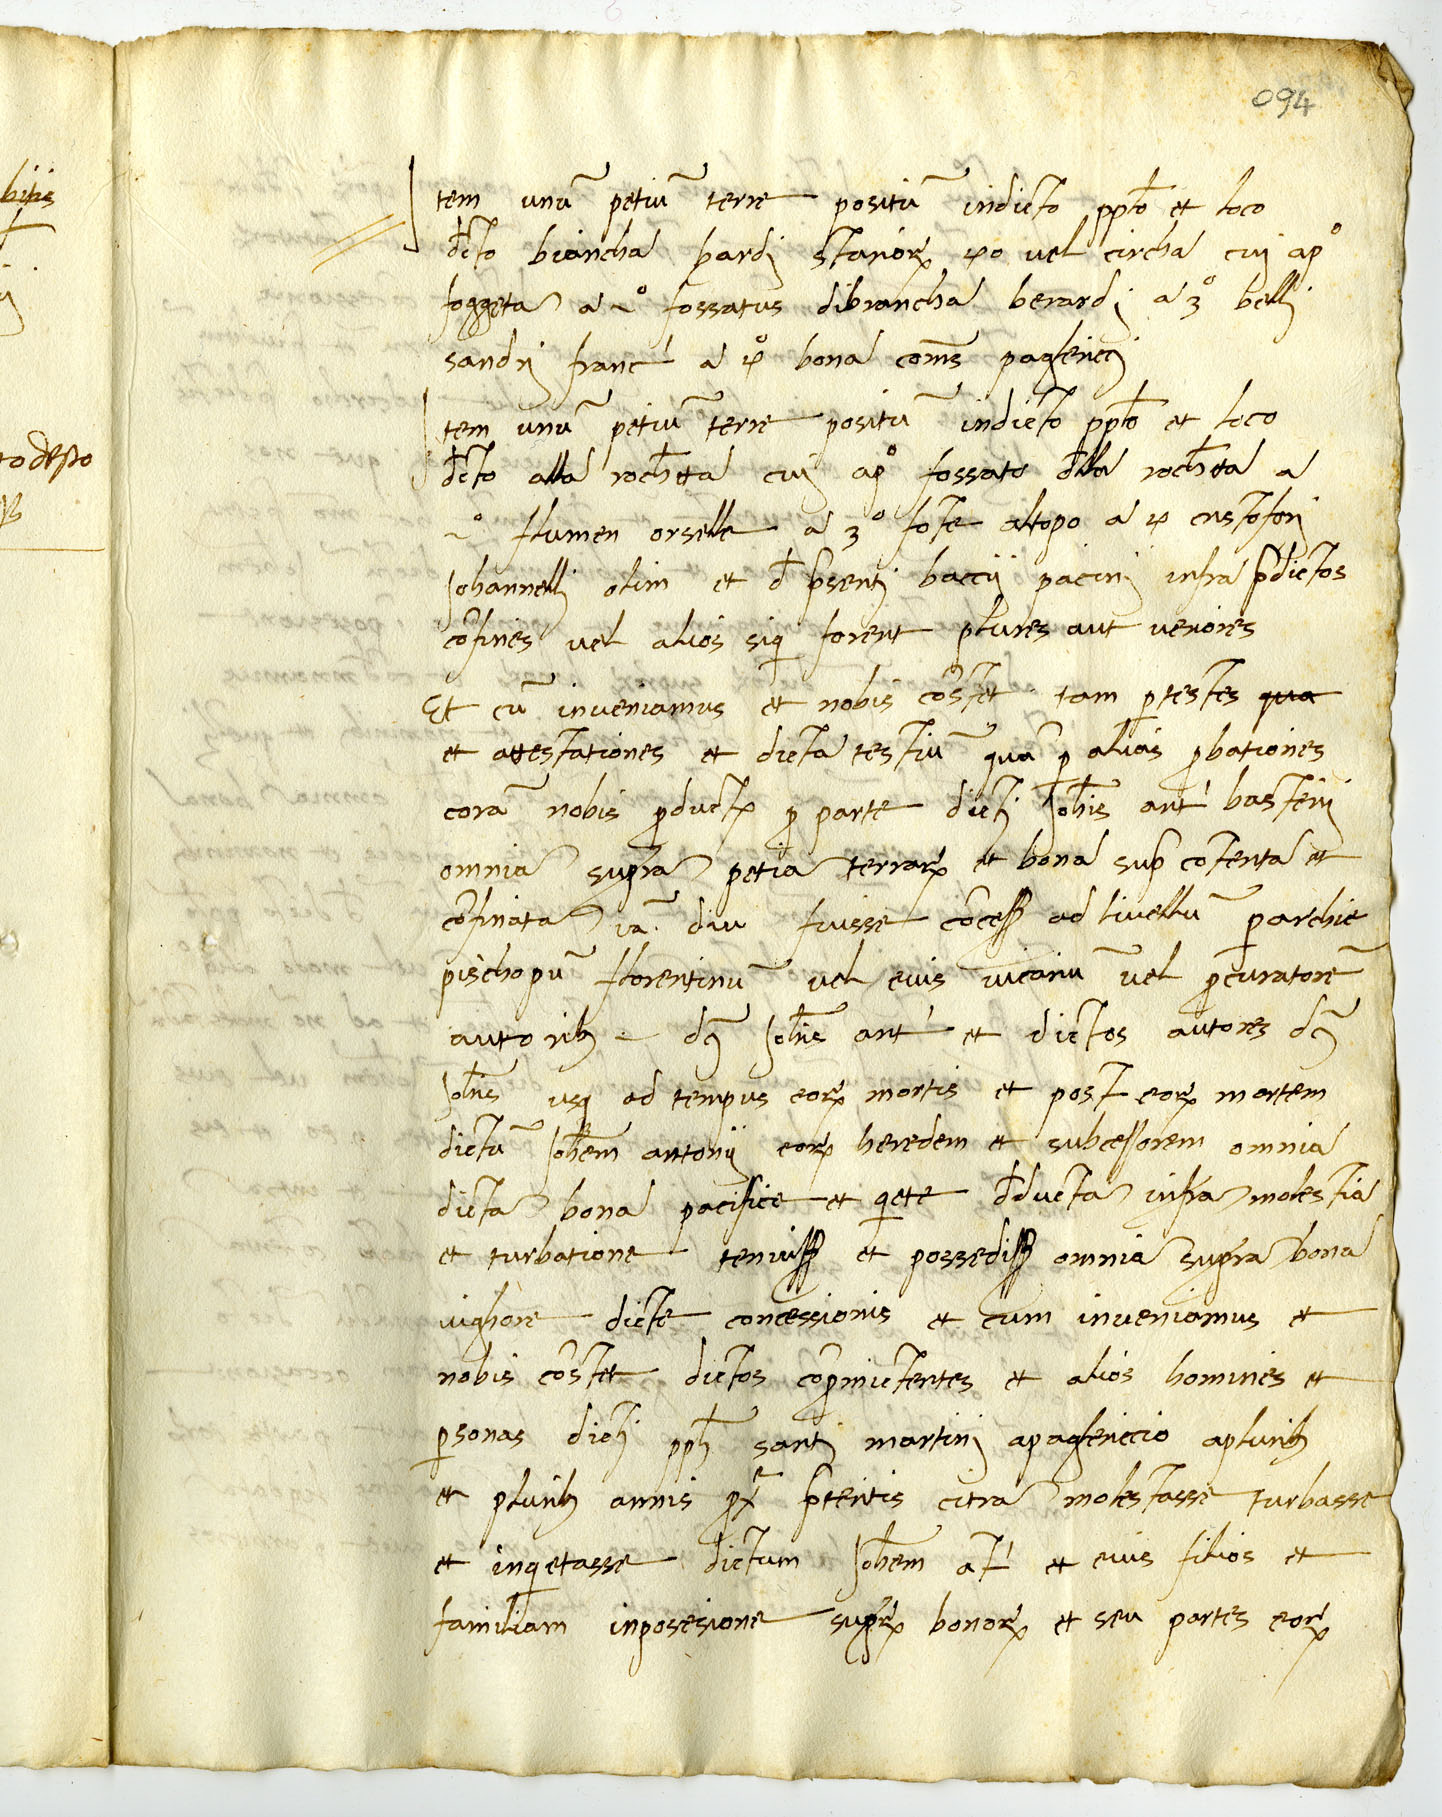 094
Item unũ petiũ terre positũ indicto ppl̃o et loco
dcto biancha bardj starioꝝ xo vel circha cuj ap°
foggeta a 2° fossatus dibrancha berardj a 3° bellj
sandrj franc' a 4° bona com̃s paglericcj
Item unũ petiũ terre positũ indicto ppl̃o et loco
dcto alla rochetta cuj ap° fossato della rochetta a
2° flumen orselle a 3° fote altopo a 4 cristoforj
Johannellj olim et d p̃sentj baccij pacinj infra p̃dictos
cõfines vel alios siq forent plures aut veriores
Et cũ inveniamus et nobis cõstet tam ptestes qua
et attestationes et dicta testiũ quã p alias pbationes
corã nobis pducta p parte dictj Joh̃is ant' basterij
omnia supra petia terraꝝ et bona sup cõtenta et
cõfinata iã diu fuisse cõcess ad livellũ p archie
pischopũ florentinũ vel eius vicariũ vel pcuratorẽ
autorib dcj Joh̃is ant' et dictos autores dcj
Joh̃is usq ad tempus eoꝝ mortis et post eoꝝ mortem
dictũ Joh̃em antonij eoꝝ heredem et subcessorem omnia
dicta bona pacifice et qete d̃ducta infra molestia
et turbatione tenuiss et possediss omnia supra bona
vighore dicte concessionis et cum inveniamus et
nobis cõstet dictos cõpmictentes et alios homines et
psonas dictj pplj santj martinj apaglericcio apluribꝫ
et pluribꝫ annis px̃ p̃teritis citra molestasse turbasse
et inqetasse dictum Joh̃em at' et eius filios et
familiam inposesione supꝝ bonoꝝ et seu partes eoꝝ
bitis
to desto